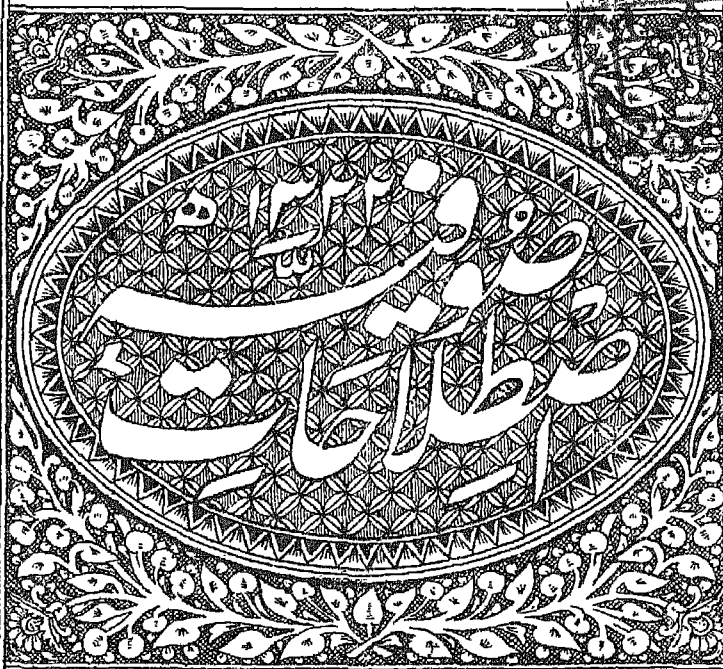 اِصْطِلَاحَاتِ
صُوفیہ
سنہ ۱۳۲۲ ھ